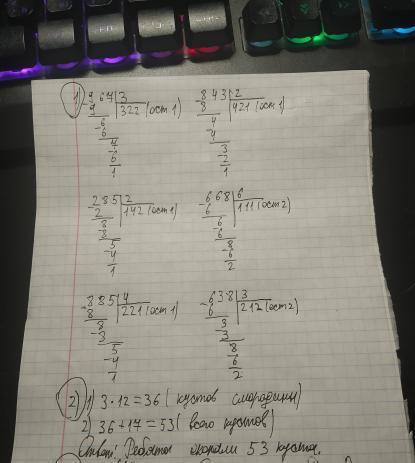 1) 967 | 3 843 | 2
9 322 (ост 1) 8 421 (ост 1)
-6 4
6 -4
7 3
-6 -2
1 1
-285 | 2 -668 | 6
2 142 (ост 1) 6 111 (ост 2)
8 -6
8 6
5 8
-4 -6
1 2
-885 | 4 -638 | 3
8 221 (ост 1) 6 212 (ост 2)
8 3
-8 3
5 8
-4 6
1 2
2) 1) 3·12=36 (кустов смородины)
2) 36+17=53 (всего кустов)
Ответ: Ребята 53 куста.